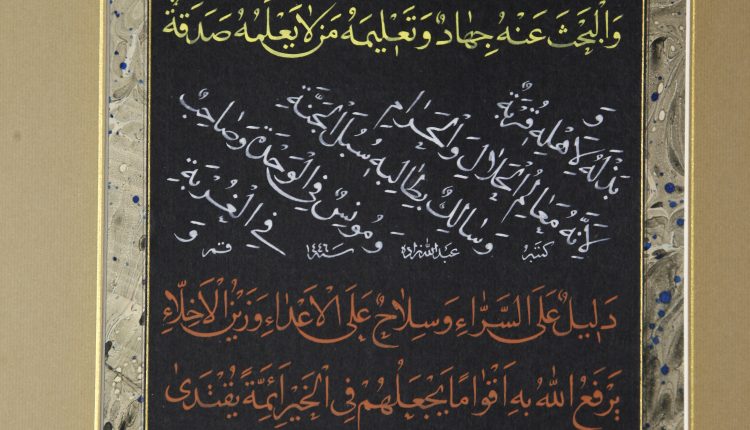 وَالْبَحْثَ عَنْهُ جِهَادٌ وَتَعْلِيمَهُ مَنْ لَا يَعْلَمُهُ صَدَقَةٌ
وَ
بَذْلَهُ لِأَهْلِهِ قُرْبَةٌ
لِأَنَّهُ مَعَالِمُ الْحَلَالِ وَالْحَرَامِ
وَسَالِكٌ بِطَالِبِهِ سُبُلَ الْجَنَّةِ
وَمُونِسٌ فِي الْوَحْدَةِ وَصَاحِبٌ
فِي الْغُرْبَةِ
وَ
كتبه عبدالله زاده سنه ١٤٤٦ قم
دَلِيلٌ عَلَى السَّرَّاءِ وَسِلَاحٌ عَلَى الْأَعْدَاءِ وَزَيْنُ الْأَخِلَّاءِ
يَرْفَعُ اللهُ بِهِ أَقْوَامًا يَجْعَلُهُمْ فِي الْخَيْرِ أَئِمَّةً يُقْتَدَى